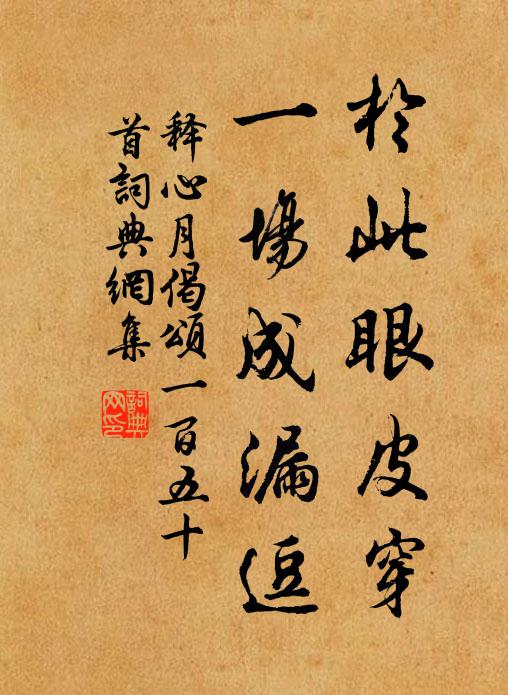 於此眼皮穿
一場成漏逗
釋心月偈頌一百五十
首詞典網集
詞典网印